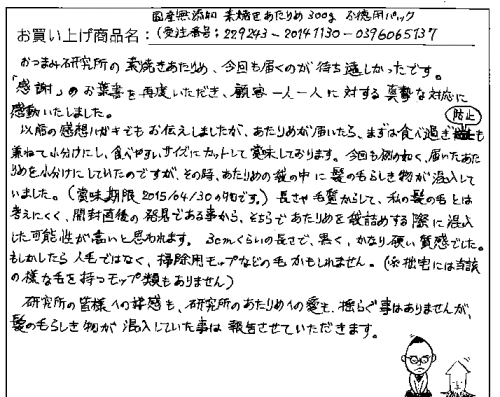 国産無添加 素焼きあたりめ 300g お徳用パック
お買い上げ商品名：(受注番号：229243-20141130-0396065137
おつまみ研究所の素焼きあたりめ、今回も届くのが待ち遠しかったです。
「感謝」のお葉書を再度いただき、顧客一人一人に対する真摯な対応に
感動いたしました。
以前の感想ハガキでもお伝えしましたが、あたりめが届いたら、まずは食べ過ぎ防止も
兼ねて小分けにし、食べやすいサイズにカットして賞味しております。今回も例の如く、届いたあた
りめを小分けにしていたのですが、その時、あたりめの袋の中に髪の毛らしき物が混入して
いました。(賞味期限2015/04/30の物です。) 長さや毛質からして、私の髪の毛とは
考えにくく、開封直後の発見である事から、そちらであたりめを袋詰めする際に混入
した可能性が高いと思われます。3cmくらいの長さで、黒く、かなり硬い質感でした。
もしかしたら人毛ではなく、掃除用モップなどの毛かもしれません。(※拙宅には当該
の様な毛を持つモップ類もありません)
研究所の皆様への好感も、研究所のあたりめへの愛も、揺らぐ事はありませんが、
髪の毛らしき物が混入していた事は報告させていただきます。